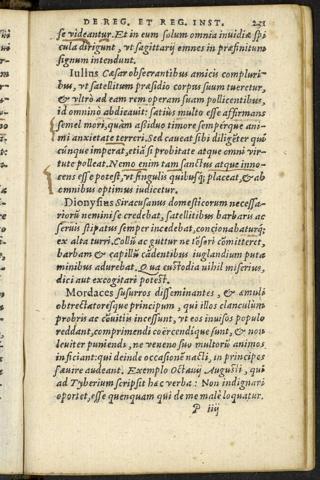 DE REG. ET REG. INST. 231
se videantur. Et in eum solum omnia invidiæ spi
cula dirigunt, vt sagittarij omnes in præfinitum
signum intendunt.
Iulius Cæsar obsecrantibus amicis compluri-
bus, vt satellitum præsidio corpus suum tueretur,
& vltrò ad eam rem operam suam pollicentibus,
id omninò abdicauit: satiùs multo esse affirmans
semel mori, quàm assiduo timore semperque ani-
mi anxietate terreri. Sed caueat sibi diligẽter qui
cúnque imperat, etiã si probitate atque omni vir-
tute polleat. Nemo enim tam sanctus atque inno-
cens esse potest, vt singulis quibusq; placeat, & ab
omnibus optimus iudicetur.
Dionysius Siracusanus domesticorum necessa-
riorũ nemini se credebat, satellitibus barbaris ac
seruis stipatus semper incedebat, concionabaturq;
ex alta turri. Collũ ac guttur ne tõsori cõmitteret,
barbam & capillũ cãdentibus iuglandium puta
minibus adurebat. Qua custodia nihil miserius,
dici aut excogitari potest.
Mordaces susurros disseminantes, & æmuli
obtrectatoresque principum, qui illos clanculùm
probris ac cõuitijs incessunt, vt eos inuisos populo
reddant, comprimendi coërcendique sunt, & non
leuiter puniendi, ne veneno suo multorũ animos
inficiant: qui deinde occasionẽ nacti, in principes
sæuire audeant. Exemplo Octauij Augusti, qui
ad Tyberium scripsit hæc verba: Non indignari
oportet, esse quenquam qui de me malè loquatur.
P iiij